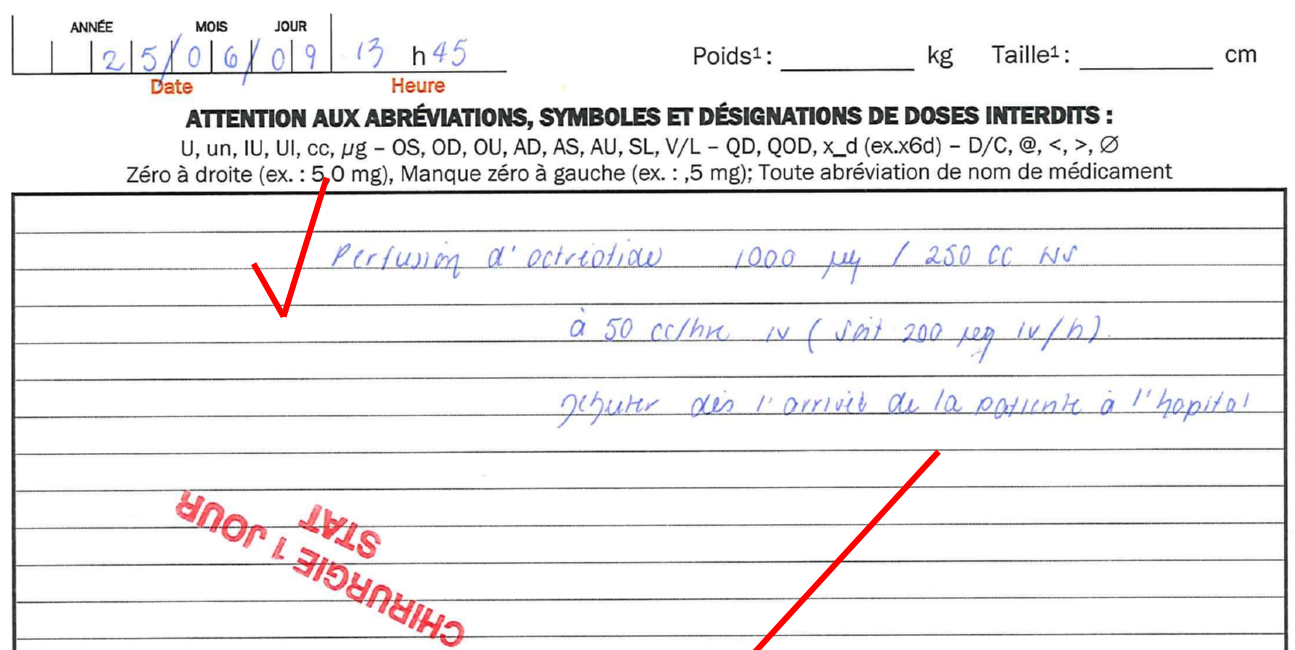 ANNÉE MOIS JOUR
25/06/09 13 h 45
Date Heure
Poids¹ : ________ kg Taille¹ : ________ cm
ATTENTION AUX ABRÉVIATIONS, SYMBOLES ET DÉSIGNATIONS DE DOSES INTERDITS :
U, un, IU, UI, cc, µg – OS, OD, OU, AD, AS, AU, SL, V/L – QD, QOD, x_d (ex.x6d) – D/C, @, <, >, ∅
Zéro à droite (ex. : 5,0 mg), Manque zéro à gauche (ex. : ,5 mg); Toute abréviation de nom de médicament
Perfusion d'octréotide 1000 µg / 250 cc NS
à 50 cc/hre IV (soit 200 µg IV/h).
Débuter dès l'arrivée de la patiente à l'hopital
CHIRURGIE 1 JOUR
STAT